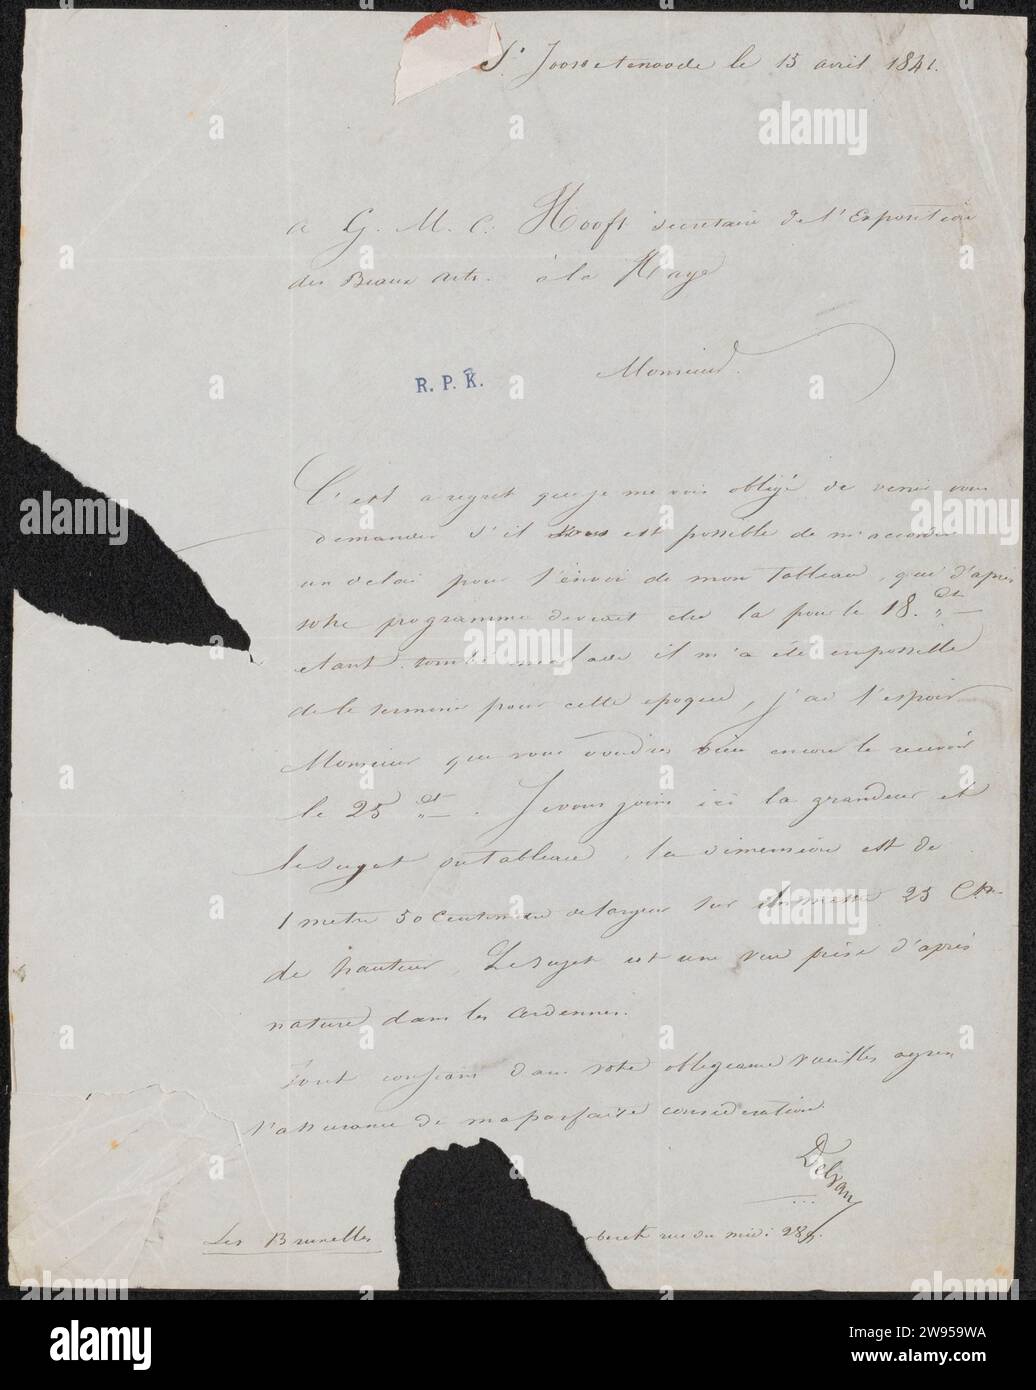 St Joosse tenoode le 13 avril 1841.
a G. M. C. Hooft secretaire de l'Exposition
des Beaux Arts. à la Haye
R. P. K.
Monsieur.
C'est a regret que je me vois obligé de venir vous
demander s'il vous est possible de m'accorder
un delai pour l'envoi de mon tableau, qui d'apres
votre programme devrait etre la pour le 18. ct
etant tombé malade il m'a été impossible
de le terminer pour cette epoque, j'ai l'espoir
Monsieur que vous voudrez bien encore le recevoir
le 25 ct. Je vous joins ici la grandeur et
le sujet du tableau, la dimension est de
1 metre 50 Centimetre de largeur sur 25 Ctm
de hauteur Le sujet est une vue prise d'après
nature dans les ardennes.
Tout confiant dans votre obligeance veuillez agreer
l'assurance de ma parfaite consideration.
Delvau
Les Bruxelles rue du midi 28
alamy
alamy
Image ID: 2W959WA
www.alamy.com